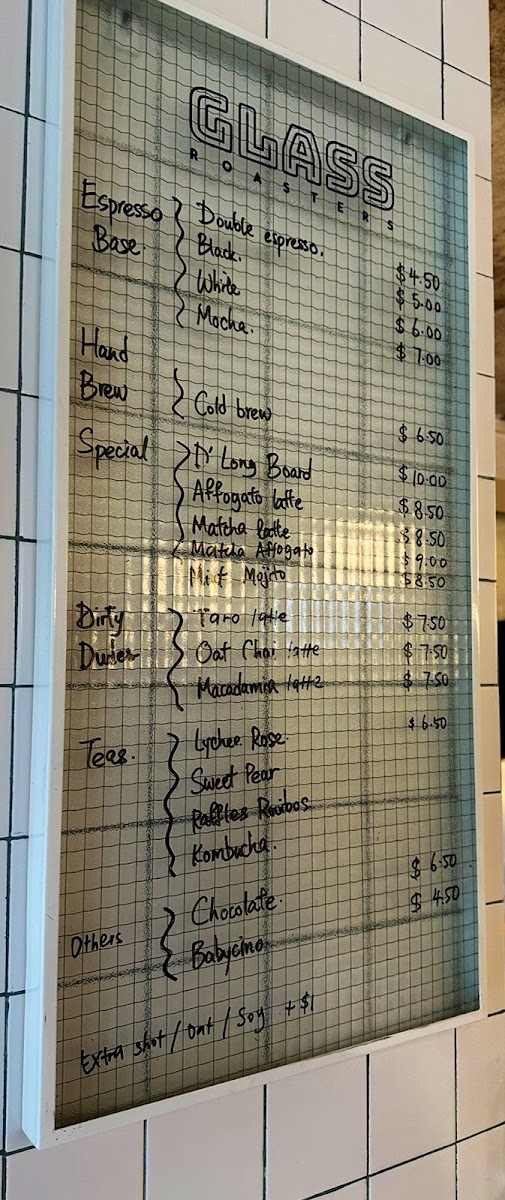 GLASS
ROASTERS
Espresso Base.
Double espresso. $4.50
Black. $5.00
White $6.00
Mocha. $7.00
Hand Brew
Cold brew $6.50
Special
D' Long Board $10.00
Affogato latte $8.50
Matcha latte $8.50
Matcha Affogato $9.00
Mojito $8.50
Dirty
Taro latte $7.50
Oat Chai latte $7.50
Macadamia latte $7.50
Teas. $6.50
Lychee Rose
Sweet Pear
Raffles Rooibos
Kombucha.
Others
Chocolate. $6.50
Babycino $4.50
Extra shot / oat / Soy +$1